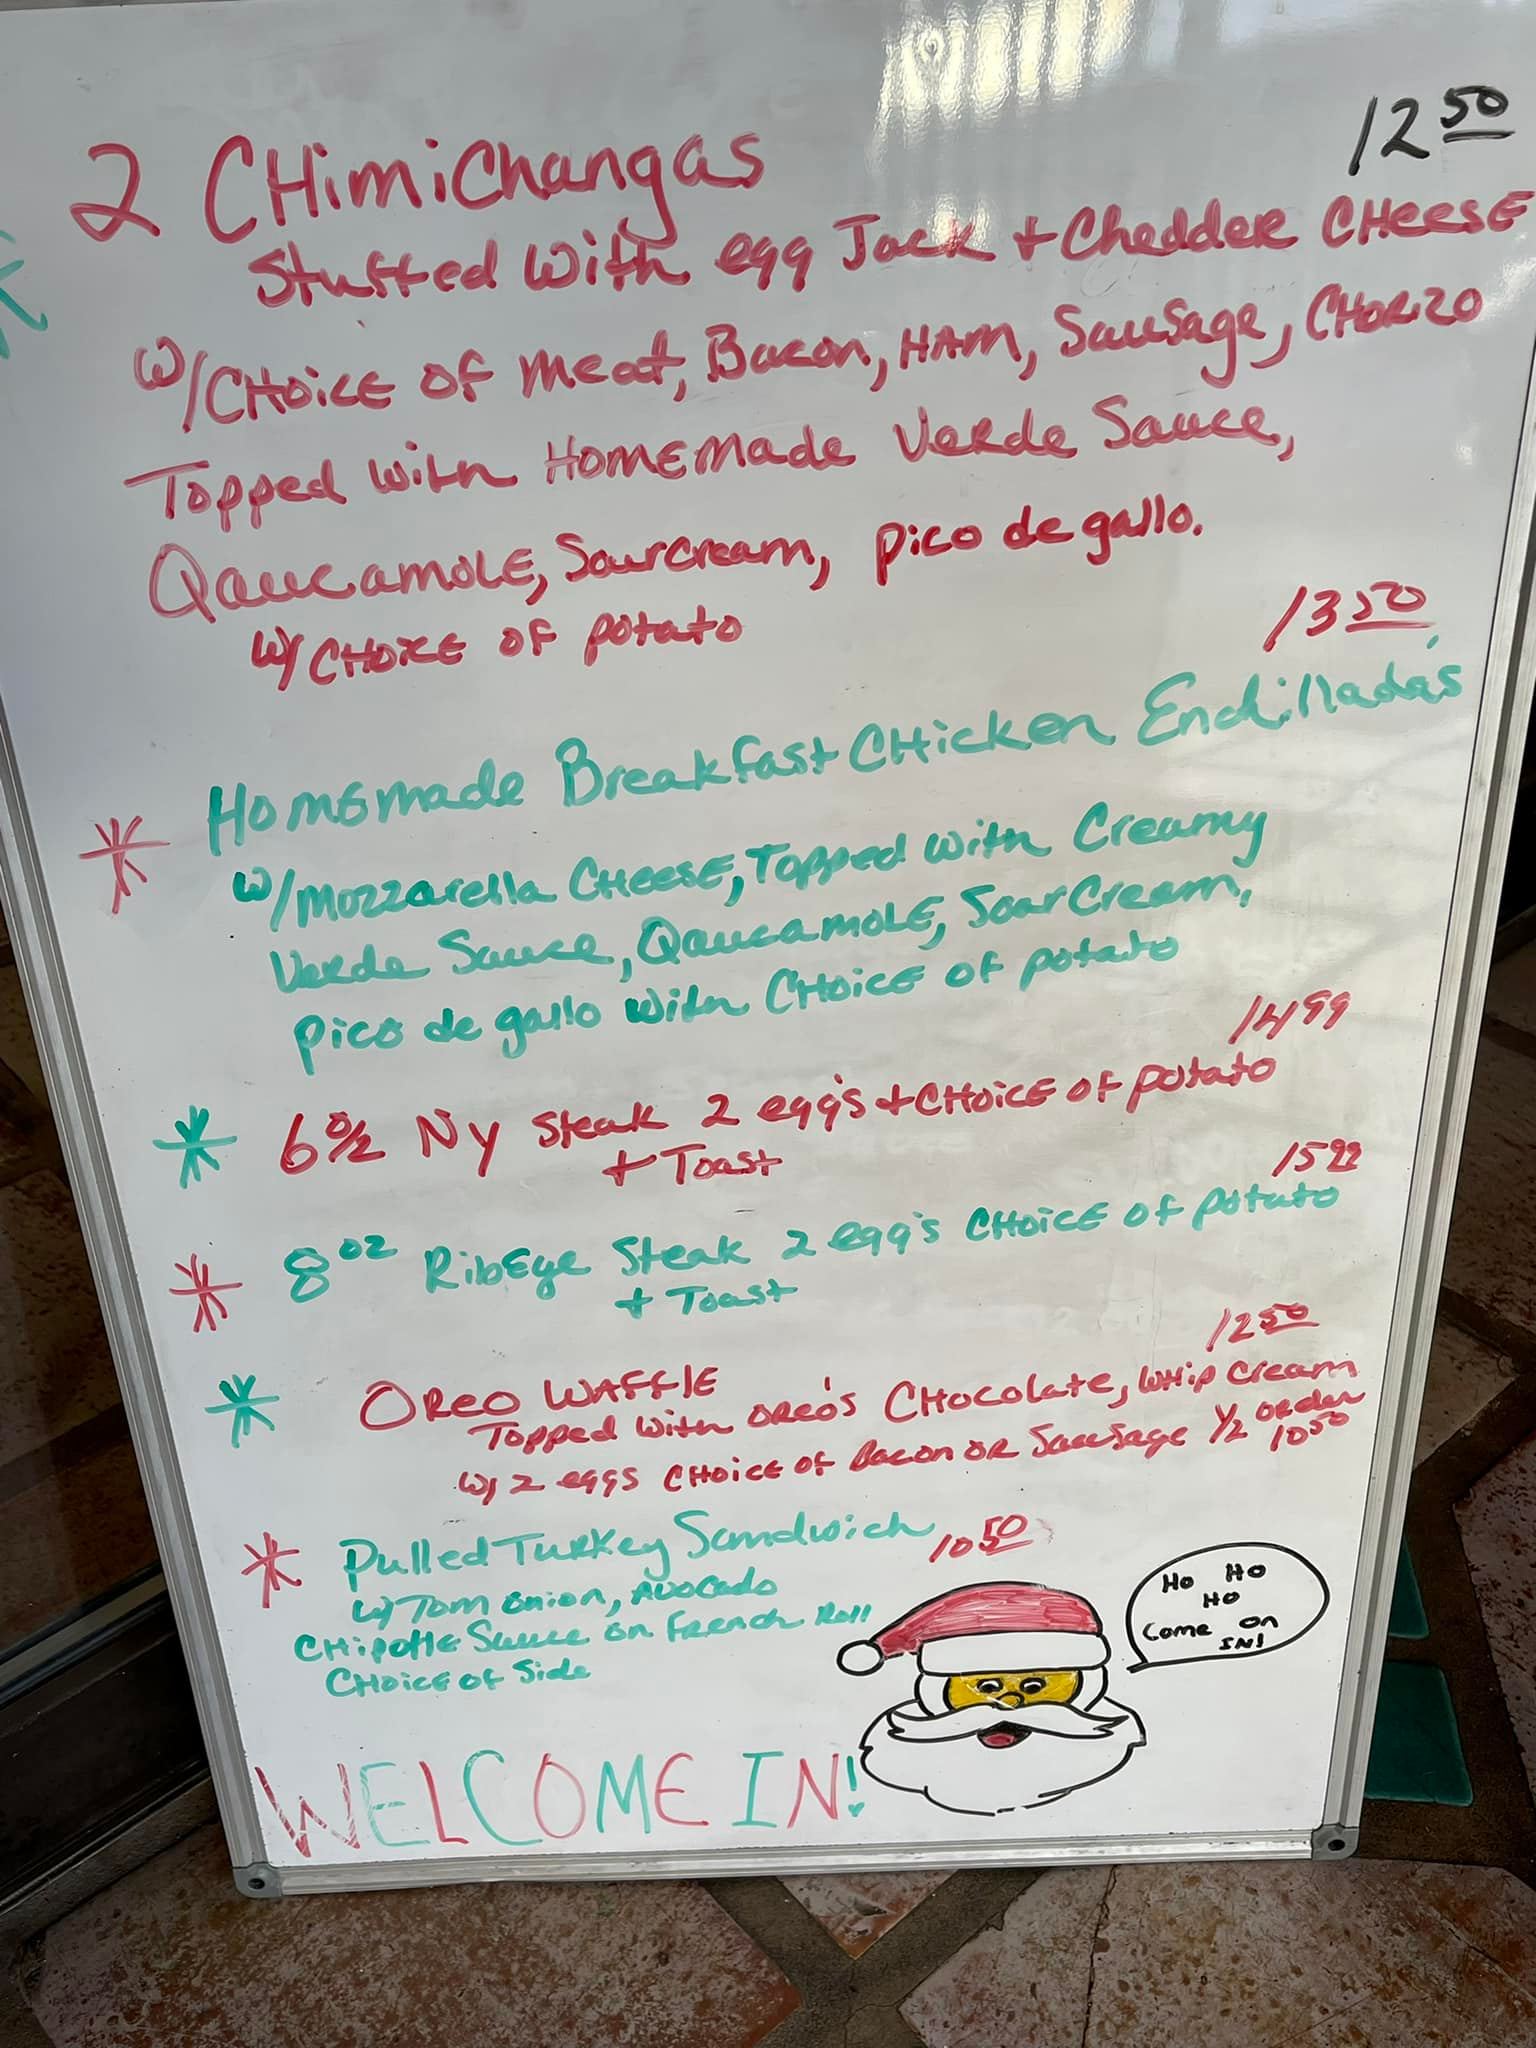 12 50
2 CHimiChangas
Stuffed With egg Jack + Chedder CHeese
W/CHOiCE of meat, Bacon, HAM, Sausage, CHORIZO
Topped With HOMEMade Verde Sauce,
QaucamOLE, Sourcream, pico de gallo.
W/ CHOiCE OF potato
13 50
HOMEmade Breakfast CHicken Enchillada's
W/Mozzarella CHeese, Topped With Creamy
Verde Sauce, QaucamOLE, Sour Cream,
pico de gallo With CHOiCE of potato
14 99
* 6 oz NY Steak 2 egg's + CHOiCE of potato
+ Toast
15 99
* 8 oz RibEye Steak 2 egg's CHOiCE of potato
+ Toast
12 50
* OREO WAFFlE
Topped With OREO's CHOColate, WHip Cream
W/ 2 eggs CHOiCE of Bacon OR Sausage 1/2 ORder
10 50
* Pulled Turkey Sandwich 10 50
W/ Tom onion, Avocado
CHipotle Sauce on French Roll
CHOiCE of Side
Ho Ho
Ho
Come on
IN!
WELCOME IN!